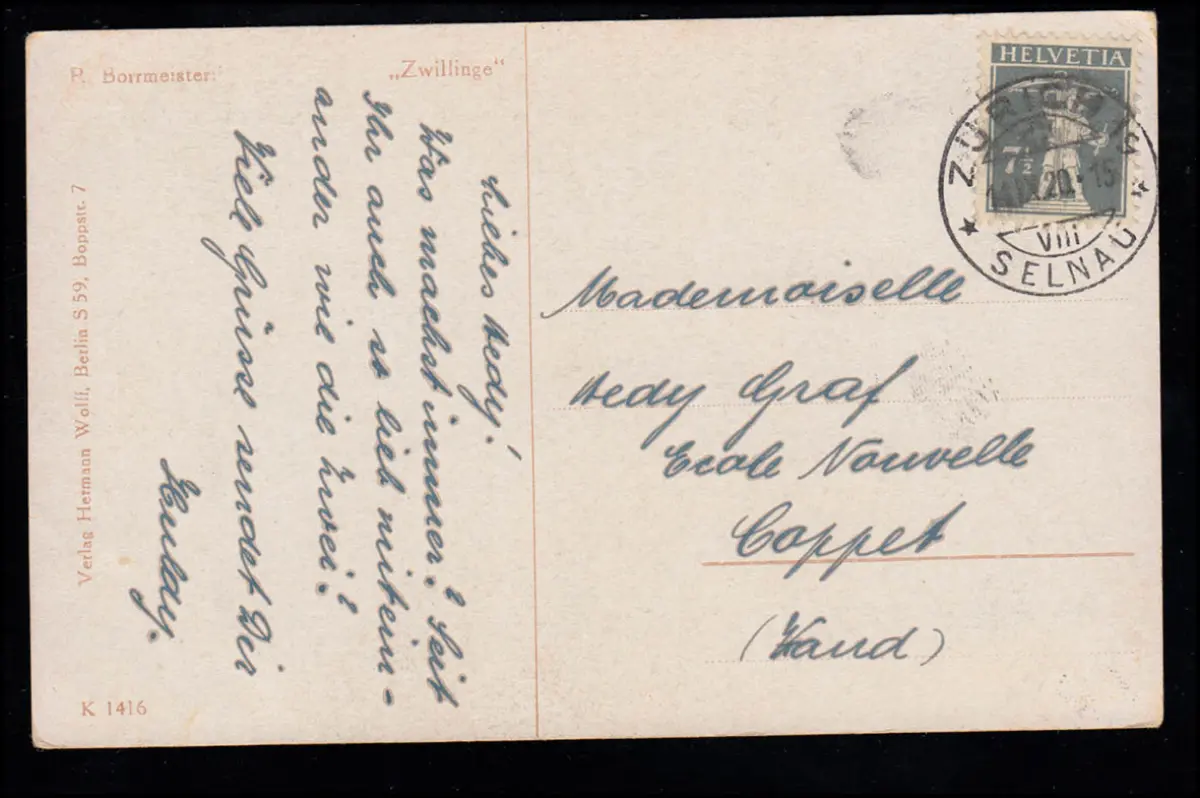 R. Borrmeister:
„Zwillinge“
Liebes Hedy!
Was machst immer? Seit
Ihr auch so lieb mitein-
ander wie die zwei?
Viele Grüsse sendet Dir
Huldy.
Verlag Hermann Wolff, Berlin S 59, Boppstr. 7
K 1416
HELVETIA
7½
ZÜRICH
IX.20. 15
VIII
SELNAU
Mademoiselle
Hedy Graf
Ecole Nouvelle
Coppet
(Vaud)